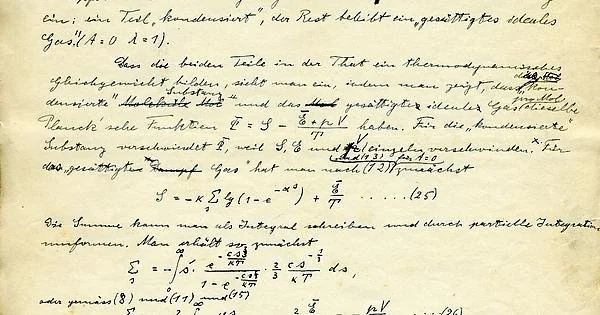 ein; ein Teil „kondensiert", der Rest bleibt ein „gesättigtes ideales
Gas". (A = 0 λ = 1).
Dass die beiden Teile in der That ein thermodynamisches
Gleichgewicht bilden, sieht man ein, indem man zeigt, dass die „kon-
densierte" Substanz und das gesättigte ideale Gas pro Mol dieselbe
Planck'sche Funktion Φ = S − (Ē + pV)/T haben. Für die „kondensierte"
Substanz verschwindet Φ, weil S, Ē und V einzeln verschwinden. Für
das „gesättigte Gas" hat man nach (12) und (13) für A = 0 zunächst
S = −κ Σ lg(1 − e^(−αs)) + Ē/T ......(25)
Die Summe kann man als Integral schreiben und durch partielle Integration
umformen. Man erhält so zunächst
Σ = −∫ s · e^(−cs^(2/3)/κT) / (1 − e^(−cs^(2/3)/κT)) · 2/3 · cs^(−1/3)/κT ds,
oder gemäss (8) und (11) und (15)